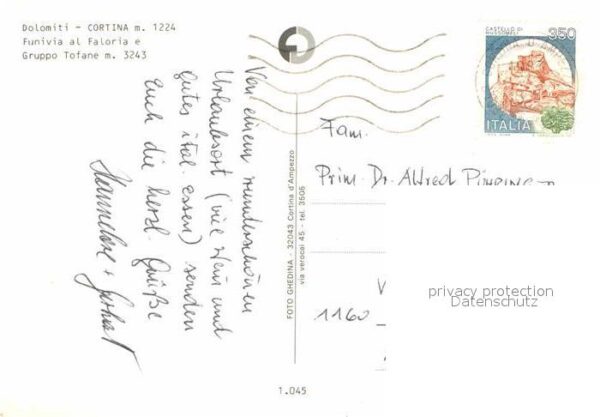 Dolomiti - CORTINA m. 1224
Funivia al Faloria e
Gruppo Tofane m. 3243
Von einem wunderschönen
Urlaubsort (viel Wein und
gutes ital. Essen) senden
Euch die herzl. Grüße
Hannelore +
FOTO GHEDINA - 32043 Cortina d'Ampezzo
via verocai 45 - tel. 3505
CASTELLO DI
350
ITALIA
Fam.
Prim. Dr. Alfred
1160
privacy protection
Datenschutz
1.045